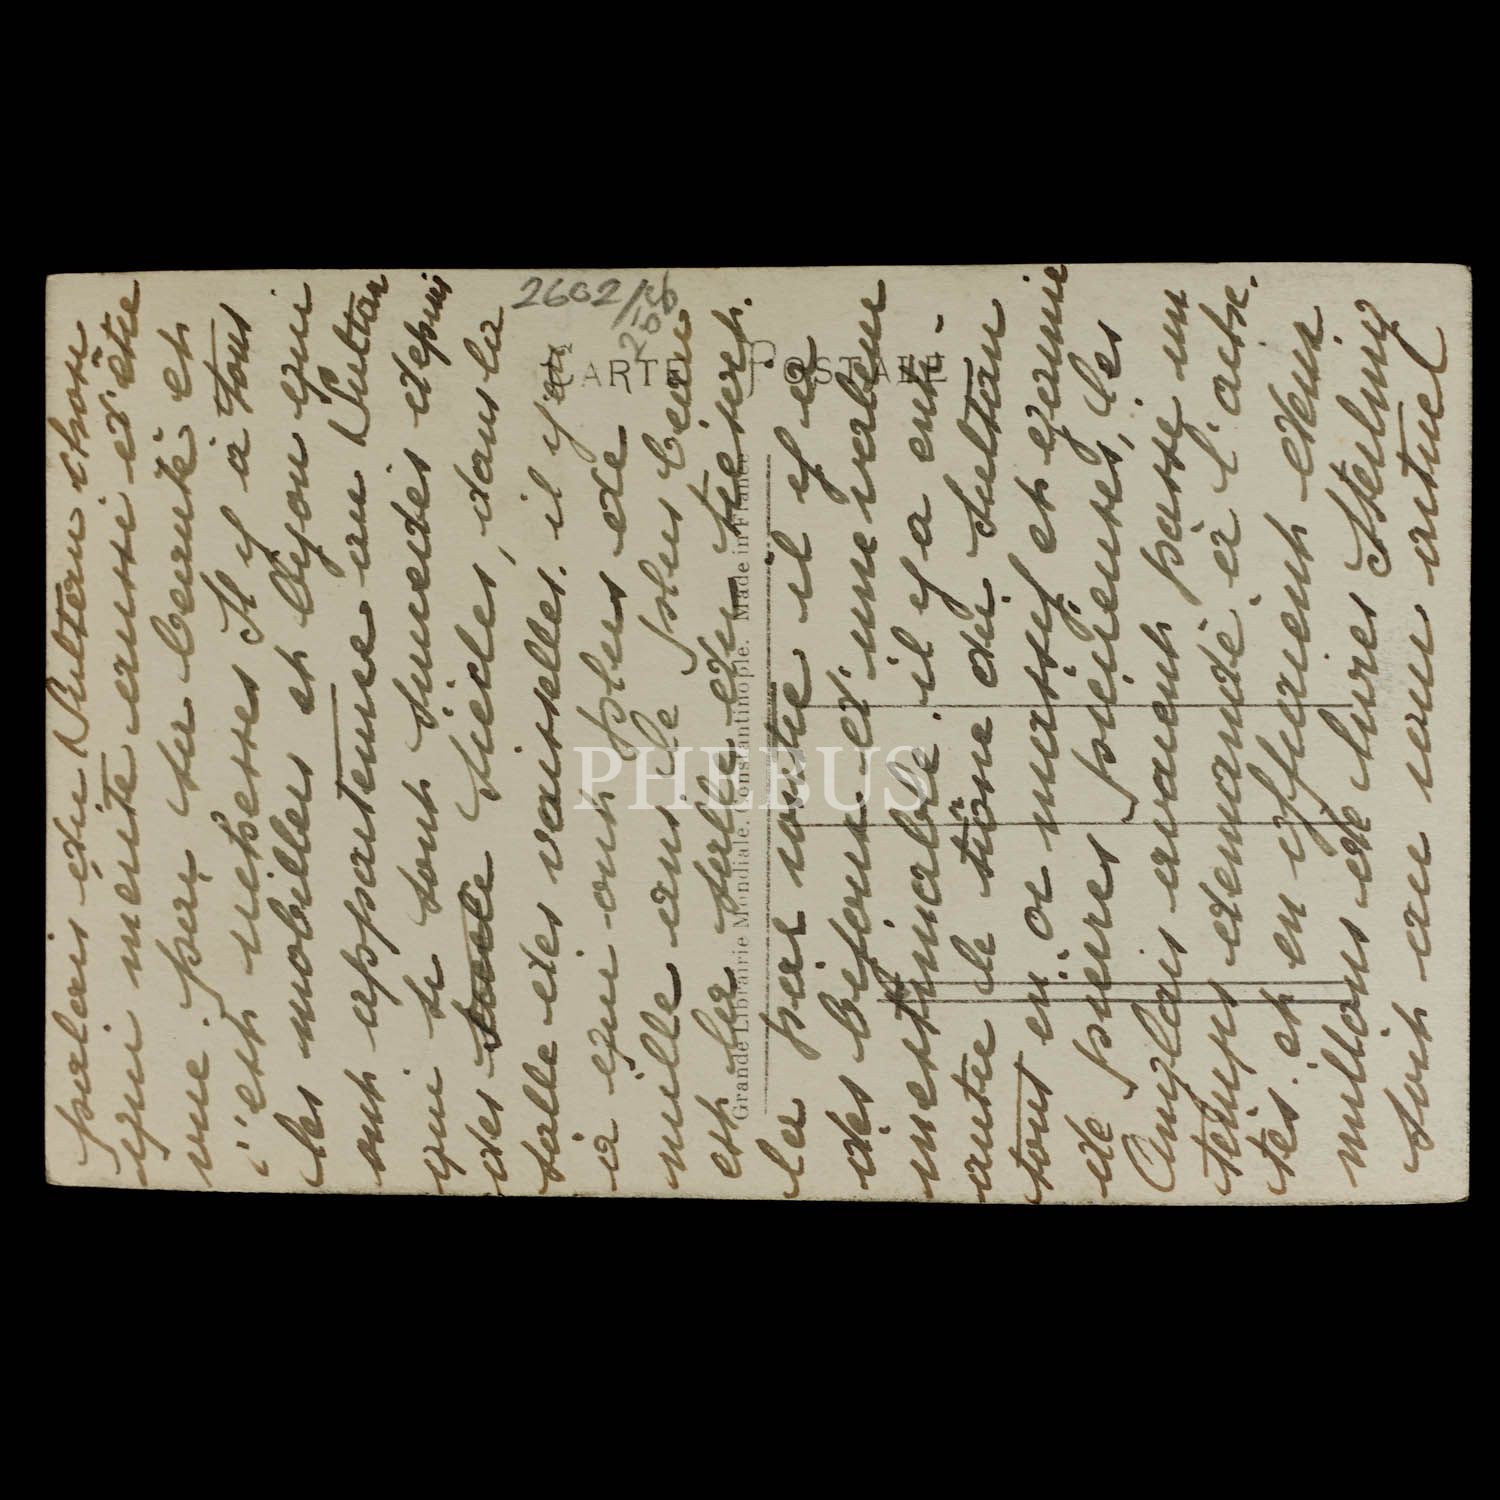 palais du Sultan chose
qui mérite aussi d'être
vue par sa beauté et
c'est richesses Il y a tous
les mobilles et bijou qui
ont appartenue au Sultan
qui se sont succédés depuis
des siècles, dans la
salle des vaiselles. il y en
a qui ont plus de
mille ans le plus beau
est la salle du trésort.
la par contre il y a
des bijoux d'une valeur
inestimable. il y a entre
autre le trône du Sultan
tout en or massif et garnie
de pures précieuses, les
Anglais avaient passé un
temps demandé à l'achete.
tes. et en offraient deux
millions de livres Sterling
soit au cour actuel
CARTE POSTALE
Grande Librairie Mondiale, Constantinople. Made in France
2602
PHEBUS